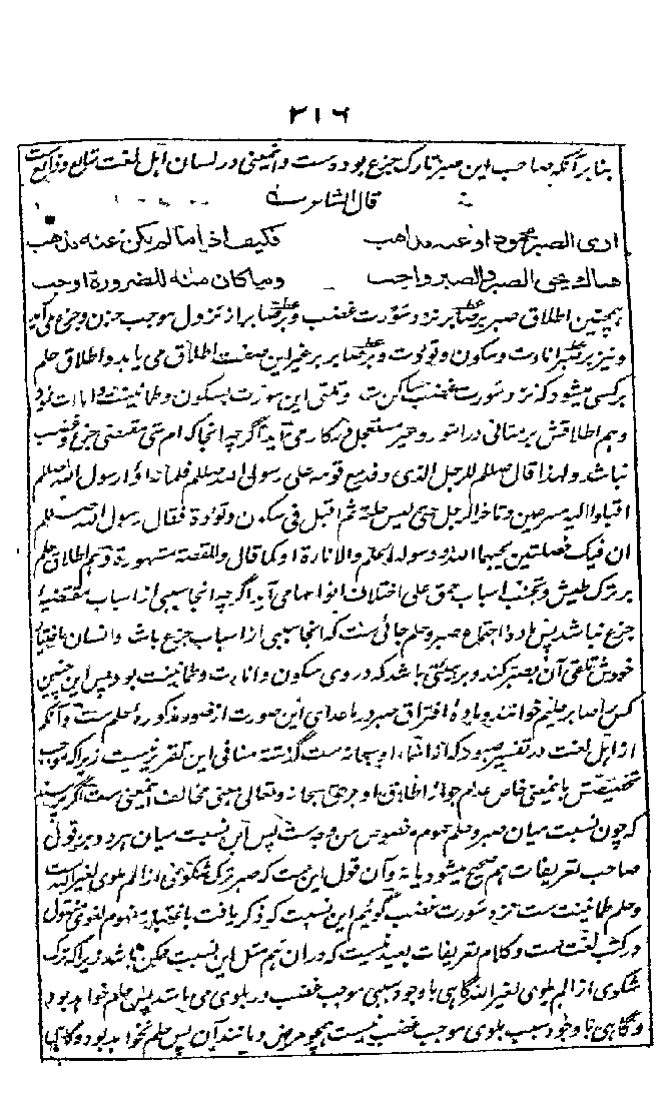 ۲۱۶
بنابر آنکه صاحب این صبر تارک جزع بوده است و اینمعنی در لسان اہل لغت شایع و ذایع است
قال الشاعر
اری الصبر محمودا وعنه مذاهب فکیف اذا ما لم یکن عنه مذهب
هناک یحق الصبر والصبر واجب وما کان منه للضرورة اوجب
ہمچنین اطلاق صبر بر نزد سَوْرت غضب و بر از نزول موجب حزن و جزع می آید
و نیز بر انارت و سکون و تؤدت و بر غیر این صفت اطلاق می یابد و اطلاق حلم
بر کسی میشود که نزد سَورت غضب ساکن ست و تلقی این سورت بسکون و طمانینت و انات نماید
و ہم اطلاقش بر متانی در امور و غیر مستعجل در کار می آید اگرچہ آنجا کدام شی مقتضی جزع و غضب
نباشد و لہذا قال صلعم للرجل الذی وفد مع قومه علی رسول الله صلعم فلما رسول الله صلعم
الیه مسرعین و تاخر الرجل حتی لبس حلته ثم اقبل فی سکون وتؤدة فقال رسول الله صلعم
ان فیک خصلتین یحبهما الله ورسوله الحلم والاناءة او کما قال والقصة مشهورة و ہم اطلاق حلم
بر ترک طیش و تجنب اسباب حمق علی اختلاف انواعها می آید اگرچہ آنجا سببی از اسباب مقتضیه
جزع نباشد پس مادهٔ اجتماع صبر و حلم جائی ست کہ آنجا سببی از اسباب جزع باشد و انسان باختیار
خودش تلقی آن بصبر کند و بر ہیئتی باشد کہ در وی سکون و انارت و طمانینت بود پس این چنین
کس را صابر و حلیم خوانند و مادهٔ افتراق صبر در ماعدای این صورت از صور مذکورهٔ حلم ست و آنکہ
از اہل لغت در تفسیر صبور کہ از اسماء او سبحانه ست گذشته منافی این تقریر نیست زیرا کہ موجب
تخصیصش بامعنی خاص عدم جواز اطلاق او بر حق سبحانه وتعالی بمعنی مخالف اینمعنی ست اگر پرسند
کہ چون نسبت میان صبر و حلم عموم و خصوص من وجه ست پس این نسبت میان ہر دو بر قول
صاحب تعریفات ہم صحیح میشود یا نه و آن قول این ست کہ صبر ترک شکوی از الم بلوی لغیر الله ست
و حلم طمانینت ست نزد سَورت غضب گوئیم این نسبت کہ ذکر یافت باعتبار مفہوم لغوی منقول
در کتب لغت ست و کلام تعریفات بعید نیست کہ در آن ہم مثل این نسبت ممکن باشد زیرا کہ ترک
شکوی از الم بلوی لغیر الله گاہی با وجود سببی موجب غضب در بلوی می باشد پس حلم خواہد بود
و گاہی با وجود سبب بلوی موجب غضب نیست ہمچو مرض و مانند آن پس حلم نخواہد بود و گاہی